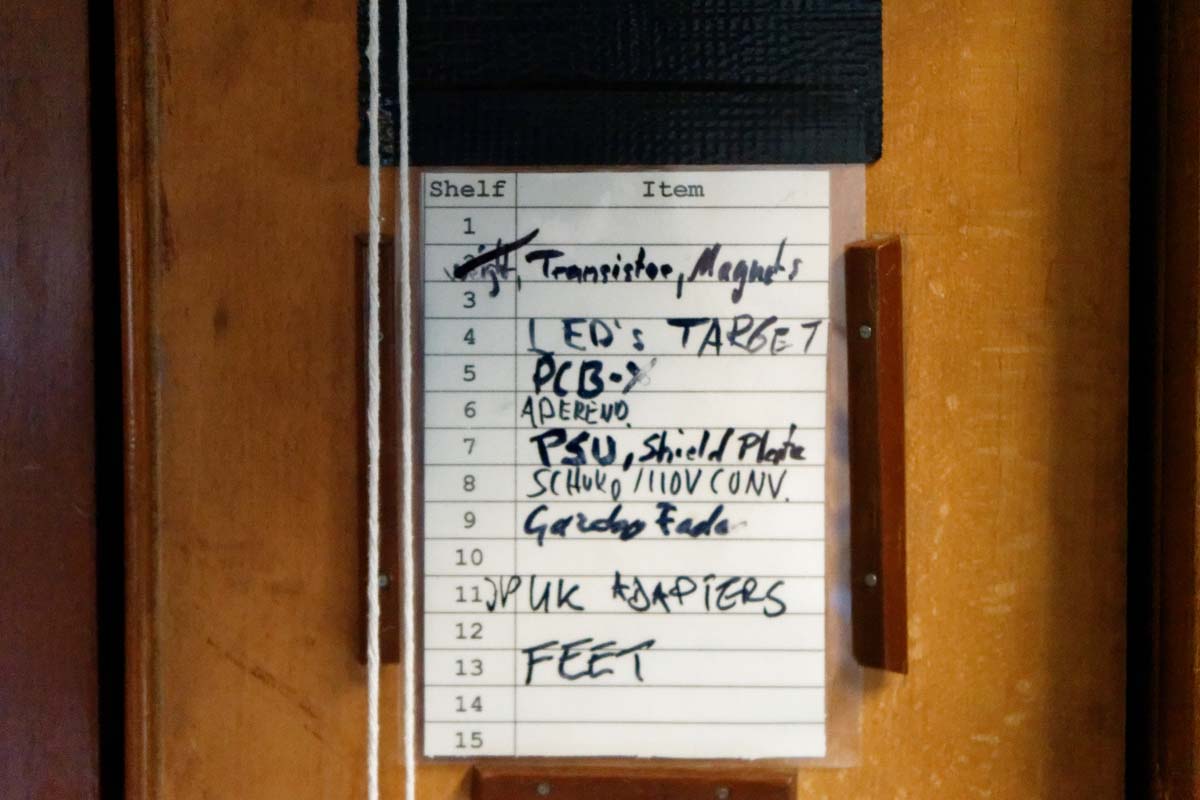 Shelf Item
1
Transistor, Magnets
3
4 LED's TARGET
5 PCB-X
6
7 PSU, Shield Plate
8 SCHUKO/110V CONV.
9
10
11 UK ADAPTERS
12
13 FEET
14
15